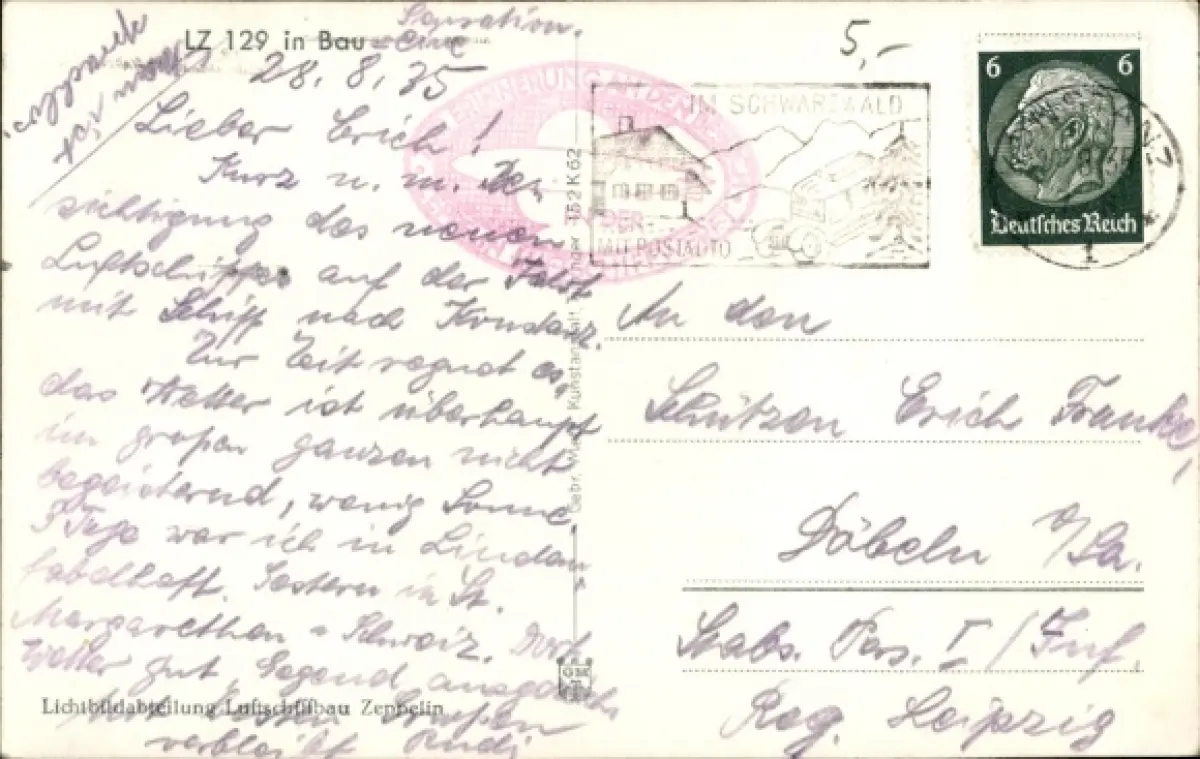 LZ 129 in Bau - eine
Sensation.
28. 8. 35
5,-
Lieber Erich!
Kurz n. m. Be-
sichtigung des neuen
Luftschiffes auf der Fahrt
mit Schiff nach Konstanz.
Zur Zeit regnet es,
das Wetter ist überhaupt
im großen ganzen nicht
begeisternd, wenig Sonne.
3 Tage war ich in Lindau
Gestern in St.
Margarethen - Schweiz. Dort
Wetter gut, Gegend
Grüßen
verbleibt Rudi
Lichtbildabteilung Luftschiffbau Zeppelin
Gebr. Kunstanstalt, 352 K 62
ERINNERUNG AN DEN
IM SCHWARZWALD
MIT POSTAUTO
6 6
Deutsches Reich
An den
Schützen Erich Franke,
Döbeln i/Sa.
Stabs. Pers. I / Inf.
Reg. Leipzig